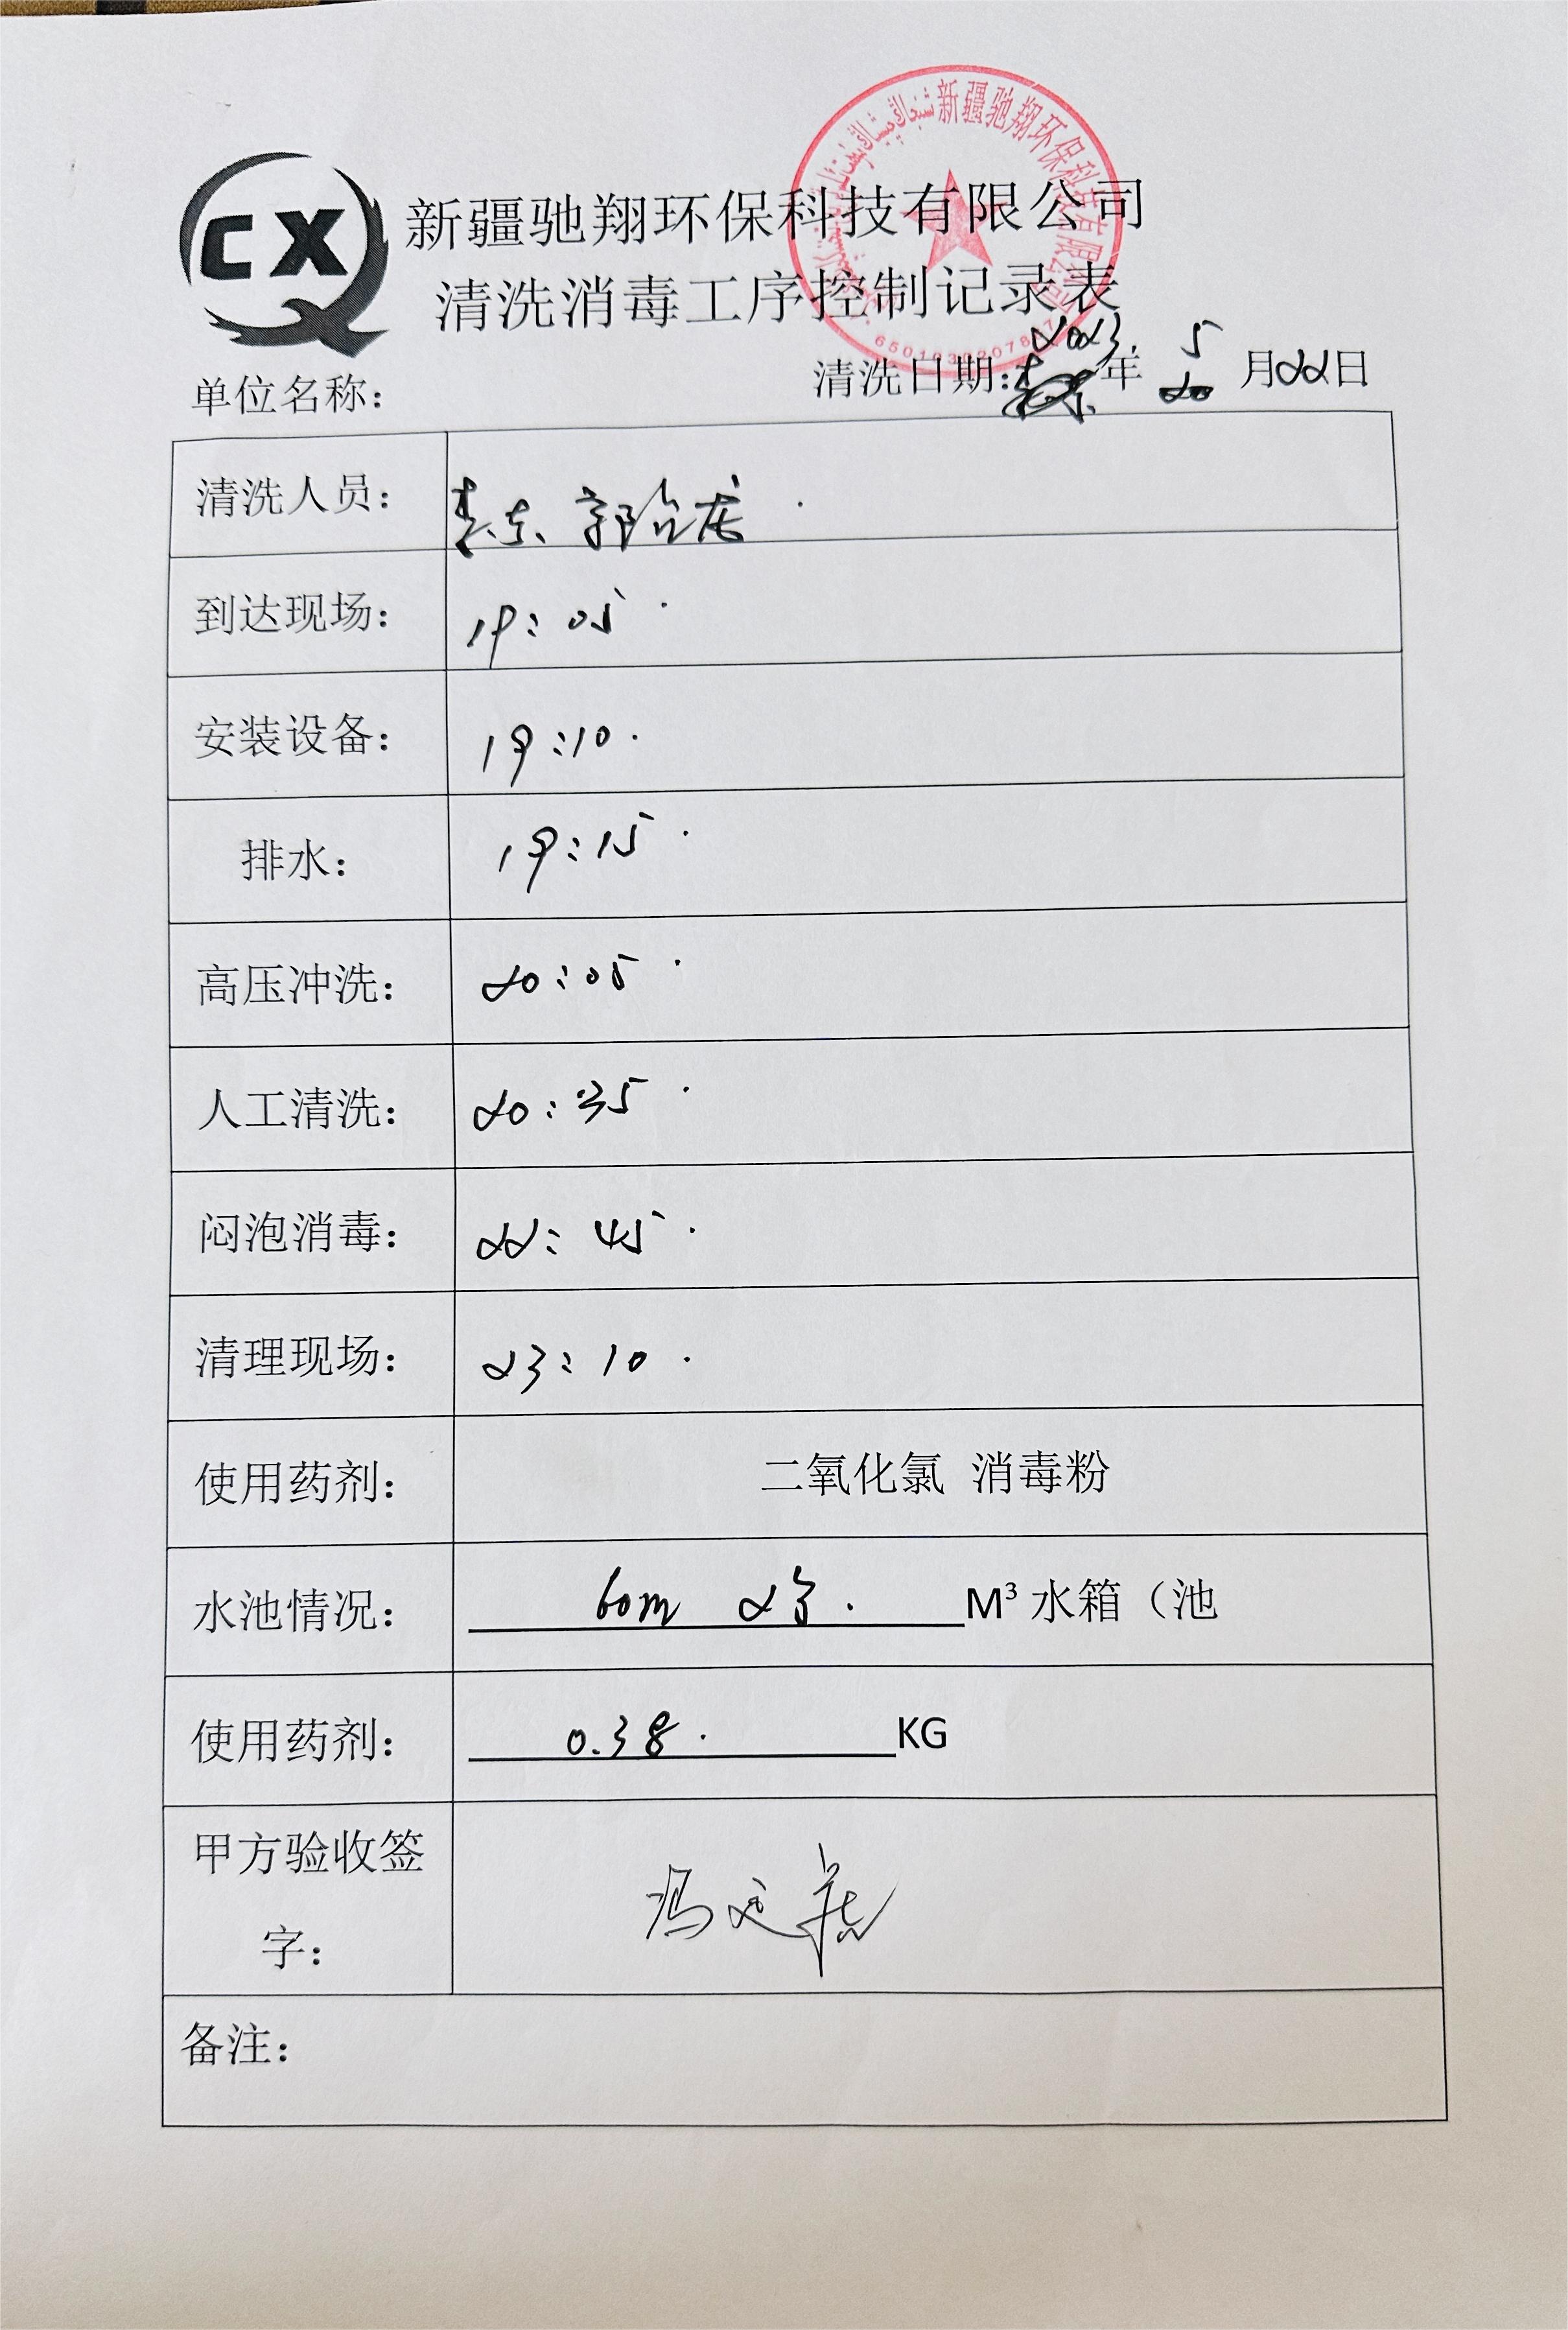 新疆驰翔环保科技有限公司
CX
新疆驰翔环保科技有限公司
清洗消毒工序控制记录表
单位名称：
清洗日期：2023年 5月22日
清洗人员：
到达现场： 19：05
安装设备： 19：10
排水： 19：15
高压冲洗： 20：05
人工清洗： 20：35
闷泡消毒： 22：45
清理现场： 23：10
使用药剂： 二氧化氯 消毒粉
水池情况： 60m M³水箱（池
使用药剂： 0.38 KG
甲方验收签
字： 冯
备注：